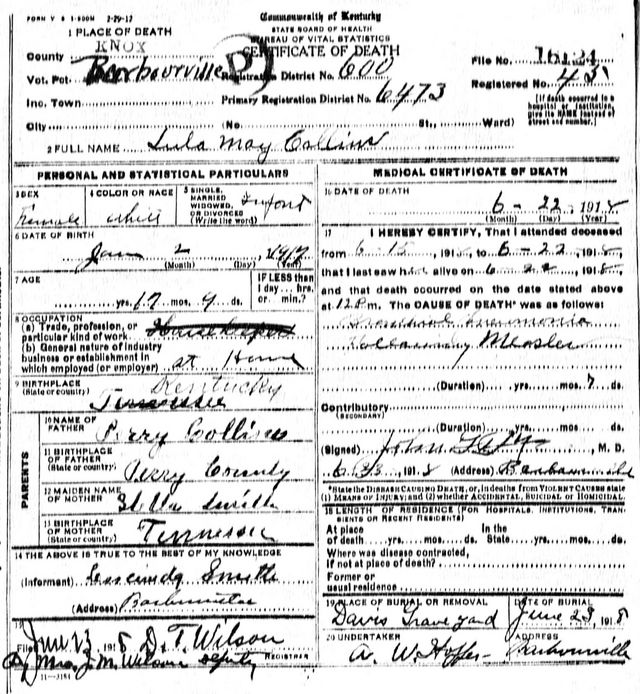 FORM V S 1-500M 2-29-17
Commonwealth of Kentucky
STATE BOARD OF HEALTH
BUREAU OF VITAL STATISTICS
CERTIFICATE OF DEATH
1 PLACE OF DEATH
County KNOX
Vot. Pct. Barbourville Registration District No. 600
File No. 16124
Registered No.
Inc. Town Primary Registration District No. 6473
[If death occurred in a hospital or institution, give its NAME instead of street and number.]
City (No. St., Ward)
2 FULL NAME Lula May Collins
PERSONAL AND STATISTICAL PARTICULARS
3 SEX Female
4 COLOR OR RACE White
5 SINGLE, MARRIED WIDOWED, OR DIVORCED (Write the word) Infant
6 DATE OF BIRTH
Jan 2 1917
(Month) (Day) (Year)
7 AGE
yrs. 17 mos. 9 ds.
IF LESS than 1 day... hrs. or min.?
8 OCCUPATION
(a) Trade, profession, or particular kind of work Housekeeper
(b) General nature of industry business or establishment in which employed (or employer) at Home
9 BIRTHPLACE (State or country) Kentucky
Tennessee
PARENTS
10 NAME OF FATHER Perry Collins
11 BIRTHPLACE OF FATHER (State or country) Perry County
12 MAIDEN NAME OF MOTHER Smith
13 BIRTHPLACE OF MOTHER (State or country) Tennessee
14 THE ABOVE IS TRUE TO THE BEST OF MY KNOWLEDGE
(Informant) Smith
(Address) Barbourville
15
Filed June 23, 1918 D. T. Wilson REGISTRAR
By Mrs. J. M. Wilson Deputy
11-3184
MEDICAL CERTIFICATE OF DEATH
16 DATE OF DEATH
6-22, 1918
(Month) (Day) (Year)
17 I HEREBY CERTIFY, That I attended deceased
from 6-15, 1918, to 6-22, 1918,
that I last saw her alive on 6-22, 1918,
and that death occurred on the date stated above
at 12 P.m. The CAUSE OF DEATH* was as follows:
Bronchial Pneumonia
Following Measles
(Duration) yrs. mos. 7 ds.
Contributory
(SECONDARY)
(Duration) yrs. mos. ds.
(Signed) M. D.
6-23, 1918 (Address) Barbourville
*State the DISEASE CAUSING DEATH, or, in deaths from VIOLENT CAUSES state (1) MEANS OF INJURY; and (2) whether ACCIDENTAL, SUICIDAL or HOMICIDAL.
18 LENGTH OF RESIDENCE (FOR HOSPITALS, INSTITUTIONS, TRANSIENTS OR RECENT RESIDENTS)
At place of death yrs. mos. ds. In the State yrs. mos. ds.
Where was disease contracted, if not at place of death?
Former or usual residence
19 PLACE OF BURIAL OR REMOVAL
Davis Graveyard
DATE OF BURIAL
June 23, 1918
20 UNDERTAKER
A. W. Hopper
ADDRESS
Barbourville